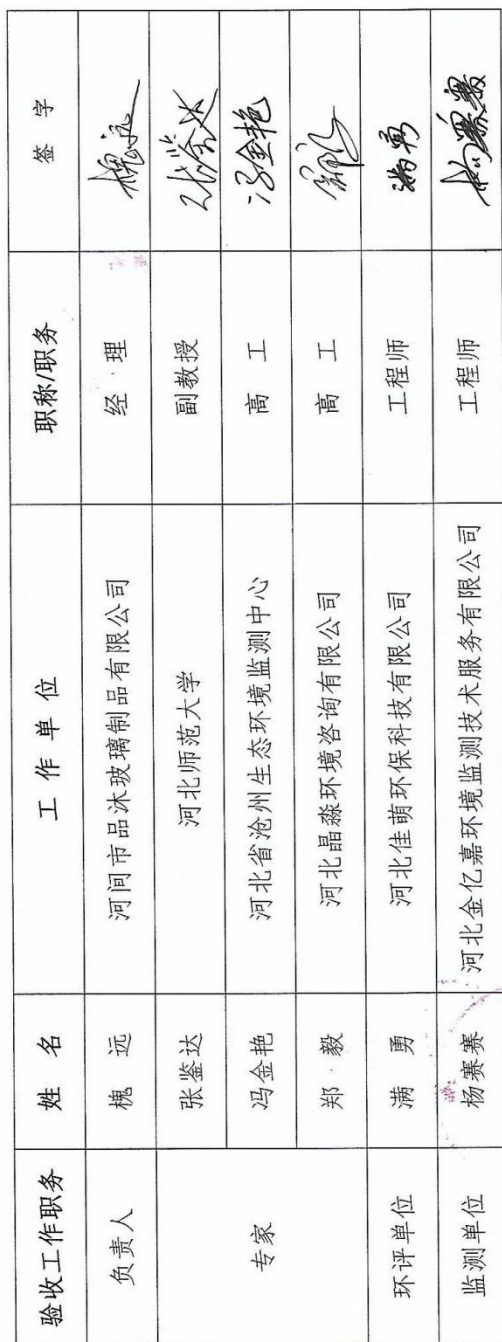 验收工作职务 姓 名 工 作 单 位 职称/职务 签 字
负责人 槐 远 河间市品沐玻璃制品有限公司 经 理 槐远
专家 张鉴达 河北师范大学 副教授 张鉴达
冯金艳 河北省沧州生态环境监测中心 高 工 冯金艳
郑 毅 河北晶淼环境咨询有限公司 高 工
环评单位 满 勇 河北佳萌环保科技有限公司 工程师 满勇
监测单位 杨赛赛 河北金亿嘉环境监测技术服务有限公司 工程师 杨赛赛